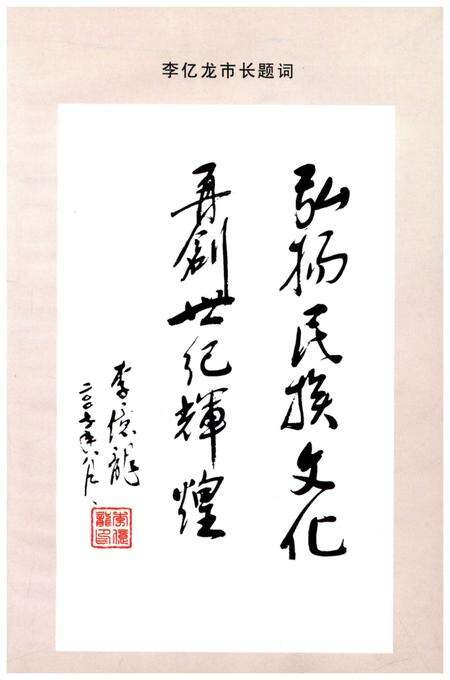 李亿龙市长题词
弘扬民族文化
再創世纪輝煌
李億龍
二〇〇七年八月